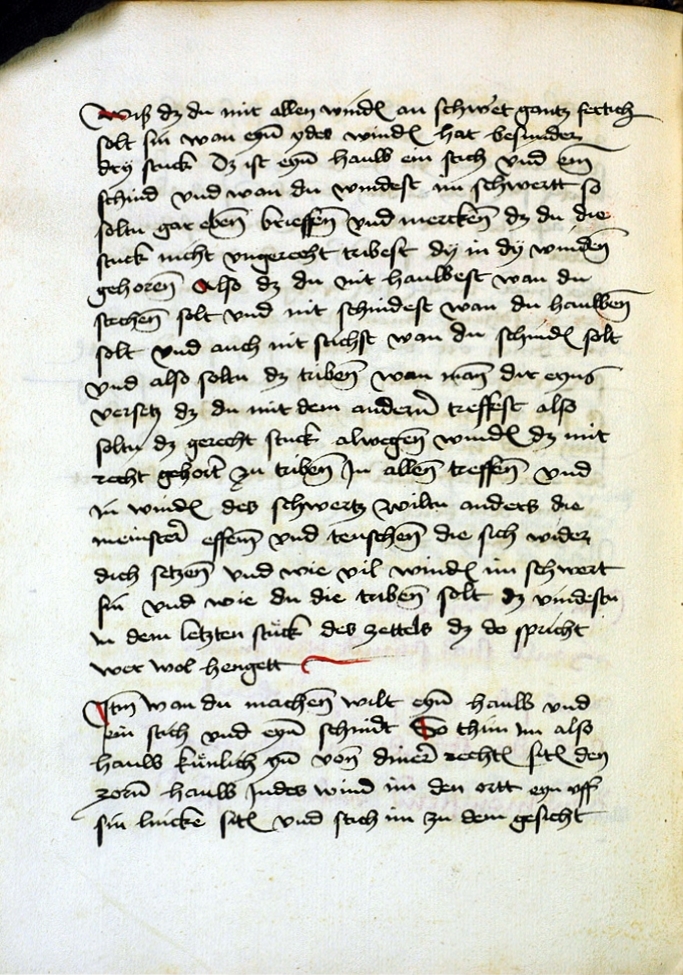 Wiß dz du mit allen windn an schwert gantz fertich
solt sin wan eyn ydes windn hat besunder
dry stuck Dz ist eyn hauw ein stich vnd ein
schind vnd wan du windest im schwertt so
soltu gar eben brieffen vnd mercken dz du die
stuck nicht vngerecht tribest dy in dy winden
gehoren Also dz du nit hauwest wan du
stechen solt vnd nit schindest wan du hauwen
solt vnd auch nit stichst wan du schindn solt
vnd also soltu dz triben wan man dir eyns
versetz dz du mit dem andern treffest also
soltu dz gerecht stuck alwegen windn dz mit
recht gehort zu triben In allen treffen vnd
in windn des schwertz wiltu anders die
meinster effenn vnd teuschen die sich wider
dich setzen vnd wie vil windn im schwert
sin vnd wie du die triben solt dz vindestu
in dem letzten stuck des zettels dz do spricht
wer wol hengett
Itm wan du machen wilt eyn hauw vnd
ein stich vnd eyn schindt So thun im also
hauw kunlich yn von diner rechtn sitn den
zorn hauw Indes wind im den ortt eyn vff
sin lincke sitn vnd stich im zu dem gesicht